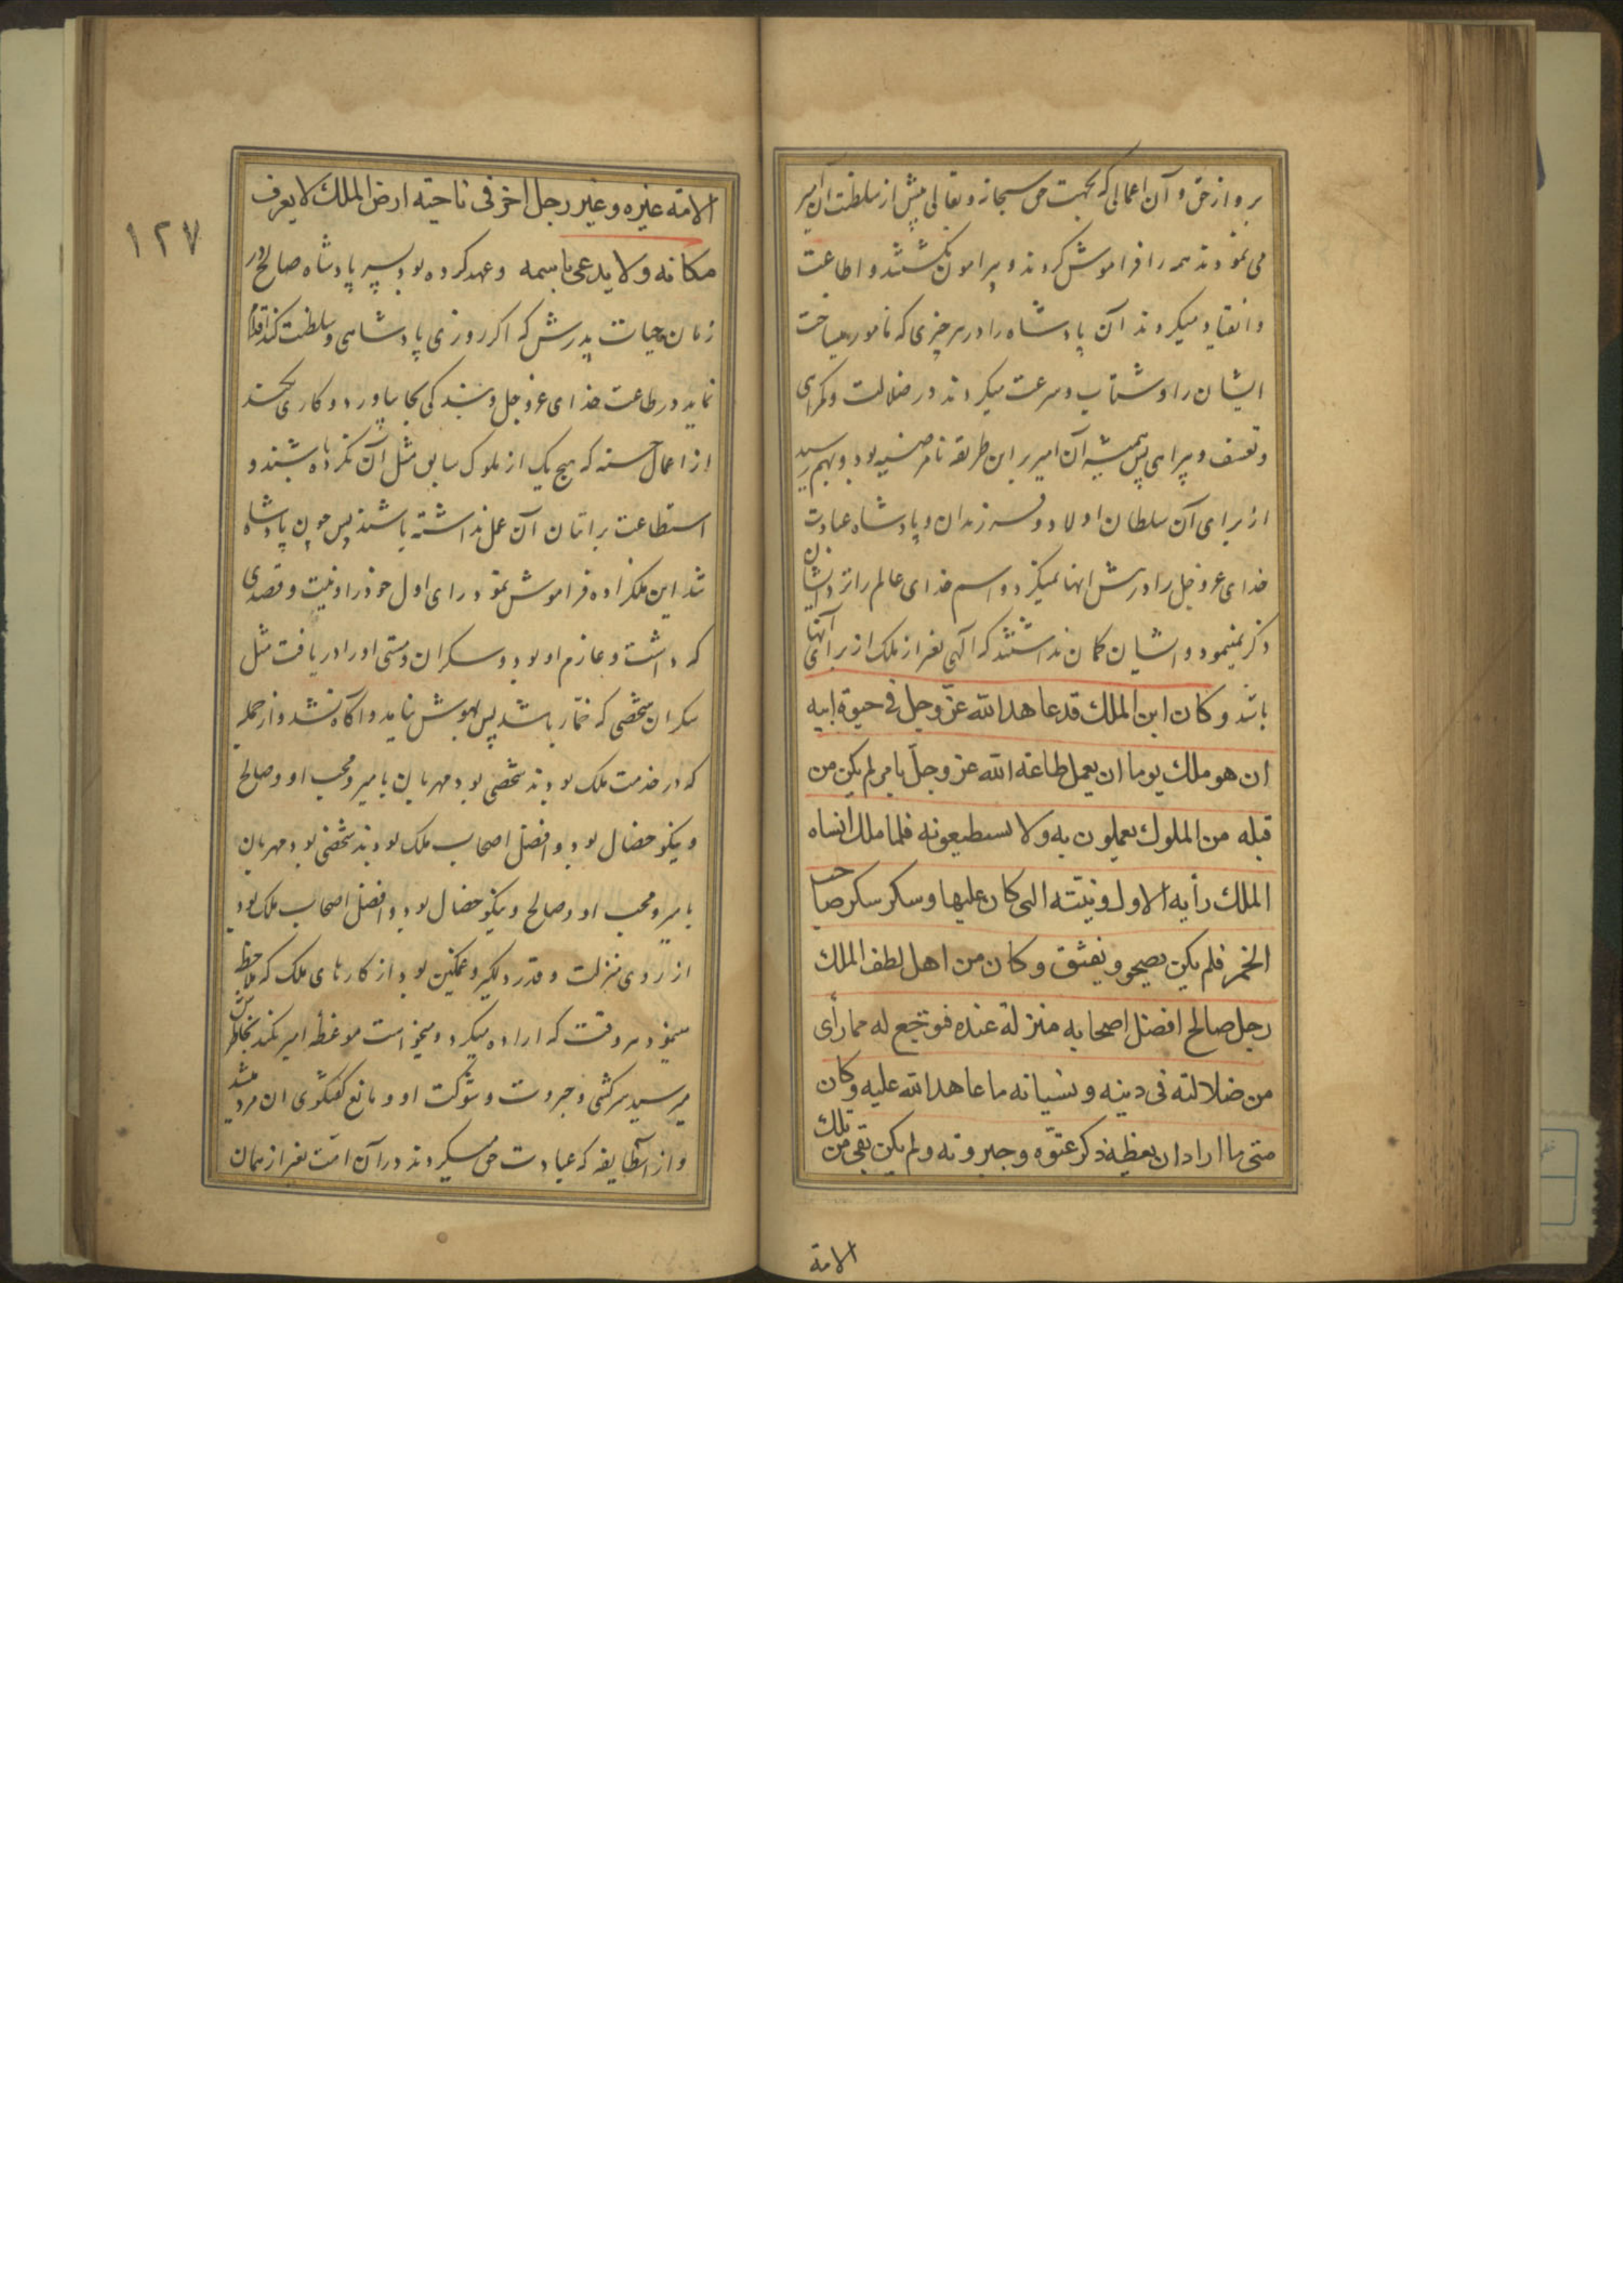 بر و از حق و آن اعمالی که بجهت حق سبحانه و تعالی پیش از سلطنت آن امیر
می نمودند همه را فراموش کردند و پیرامون نکشتند و اطاعت
و انقیاد میکردند آن پادشاه را در هر چیزی که مامور میساخت
ایشان را و شتاب و سرعت میکردند در ضلالت و کمراهی
و تعسف و پیراهی پس همیشه آن امیر بر این طریقه نامرضیه بود و بهم رسید
از برای آن سلطان اولاد و فرزندان و پادشاه عبادت
خدای عز و جل را در پیش انها نمیکرد و اسم خدای عالم را نزد ایشان
ذکر نمینمود و ایشان کمان نداشتند که آلهی بغیر از ملک از برای آنها
باشد و کان ابن الملك قد عاهد الله عزّ وجل فی حیوة ابیه
ان هو ملك یوما ان یعمل طاعة الله عز وجلّ بامر لم یکن من
قبله من الملوك یعملون به ولا یستطیعونه فلما ملك انساه
الملك رأیه الاول و نیته التی کان علیها و سکر سکر صاحب
الخمر فلم یکن یصحو و یفیق و کان من اهل لطف الملك
رجل صالح افضل اصحابه منزلة عنده فتوجّع له مما رأی
من ضلالته فی دینه و نسیانه ما عاهد الله علیه و کان
متی ما اراد ان یعظه ذکر عتوّه و جبروته ولم یکن بقی من تلك
الامة
١٢٧
الامة غیره و غیر رجل اخر فی ناحیة ارض الملك لا یعرف
مکانه ولا یدعی باسمه و عهد کرده بود پسر پادشاه صالح در
زمان حیات پدرش که اکر روزی پادشاهی و سلطنت کند اقدام
نماید در طاعت خدای عز و جل و بندکی بجا بیاورد و کاری بکند
از اعمال حسنه که هیچ یک از ملوک سابق مثل آن نکرده باشند و
استطاعت بر اتیان آن عمل نداشته باشند پس چون پادشاه
شد این ملکزاده فراموش نمود رای اول خود را و نیت و قصدی
که داشت و عازم او بود و سکران و مستی او را دریافت مثل
سکران شخصی که خمّار باشد پس بهوش نیامد و آکاه نشد و از جمله
که در خدمت ملک بودند شخصی بود مهربان بامیر و محب او و صالح
و نیکو خصال بود و افضل اصحاب ملک بودند شخصی بود مهربان
بامیر و محب او و صالح و نیکو خصال بود و افضل اصحاب ملک بود
از روی منزلت و قدر و دلکیر و غمکین بود از کارهای ملک که ملاحظه
مینمود هر وقت که اراده میکرد و میخواست موعظه امیر بکند بخاطرش
میرسید سرکشی و جبروت و شوکت او و مانع کفتکوی ان مرد میشد
و از آنطایفه که عبادت حق میکردند در آن امّت بغیر از همان